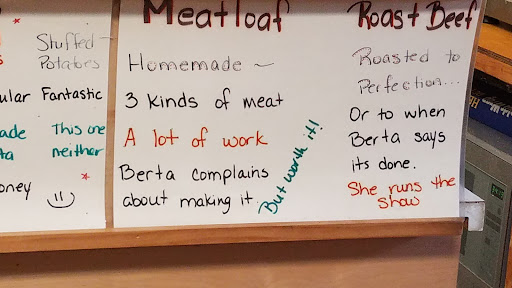 Stuffed
Potatoes
Fantastic
This one
neither
Meatloaf
Homemade ~
3 kinds of meat
A lot of work
Berta complains
about making it.
But worth it!
Roast Beef
Roasted to
Perfection...
Or to when
Berta says
its done.
She runs the
show